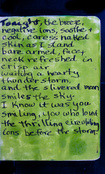 Tonight, the brace,
negative ions, soothe &
cool, caress naked
skin as I stand
bare armed, face,
neck refreshed in
crisp air
waiting a hearty
thunder storm
and the slivered moon
smiles the sky
I know it was you
smiling, you who build
the thrilling everything
ions before the storm